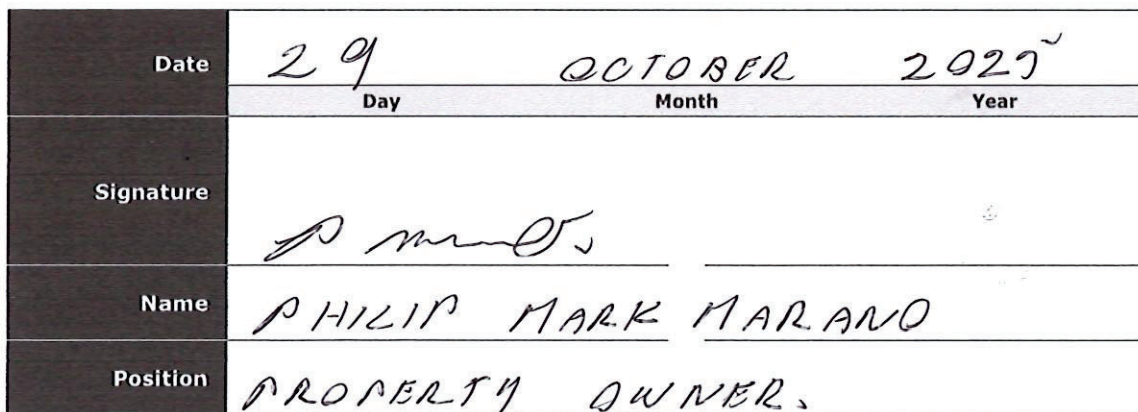 Date 29 OCTOBER 2025
Day Month Year
Signature
Name PHILIP MARK MARANO
Position PROPERTY OWNER.